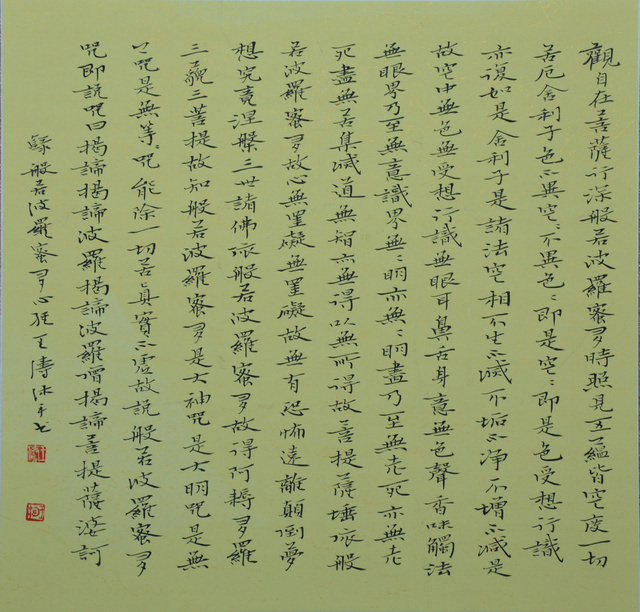 觀自在菩薩行深般若波羅蜜多時照見五蘊皆空度一切
苦厄舍利子色不異空〻不異色〻即是空〻即是色受想行識
亦復如是舍利子是諸法空相不生不滅不垢不净不增不減是
故空中無色無受想行識無眼耳鼻舌身意無色聲香味觸法
無眼界乃至無意識界無〻明亦無〻明盡乃至無老死亦無老
死盡無苦集滅道無智亦無得以無所得故菩提薩埵依般
若波羅蜜多故心無罣礙無罣礙故無有恐怖遠離顛倒夢
想究竟涅槃三世諸佛依般若波羅蜜多故得阿耨多羅
三藐三菩提故知般若波羅蜜多是大神咒是大明咒是無
上咒是無等〻咒能除一切苦真實不虛故說般若波羅蜜多
咒即說咒曰揭諦揭諦波羅揭諦波羅僧揭諦菩提薩婆訶
錄般若波羅蜜多心經王濤沐手書